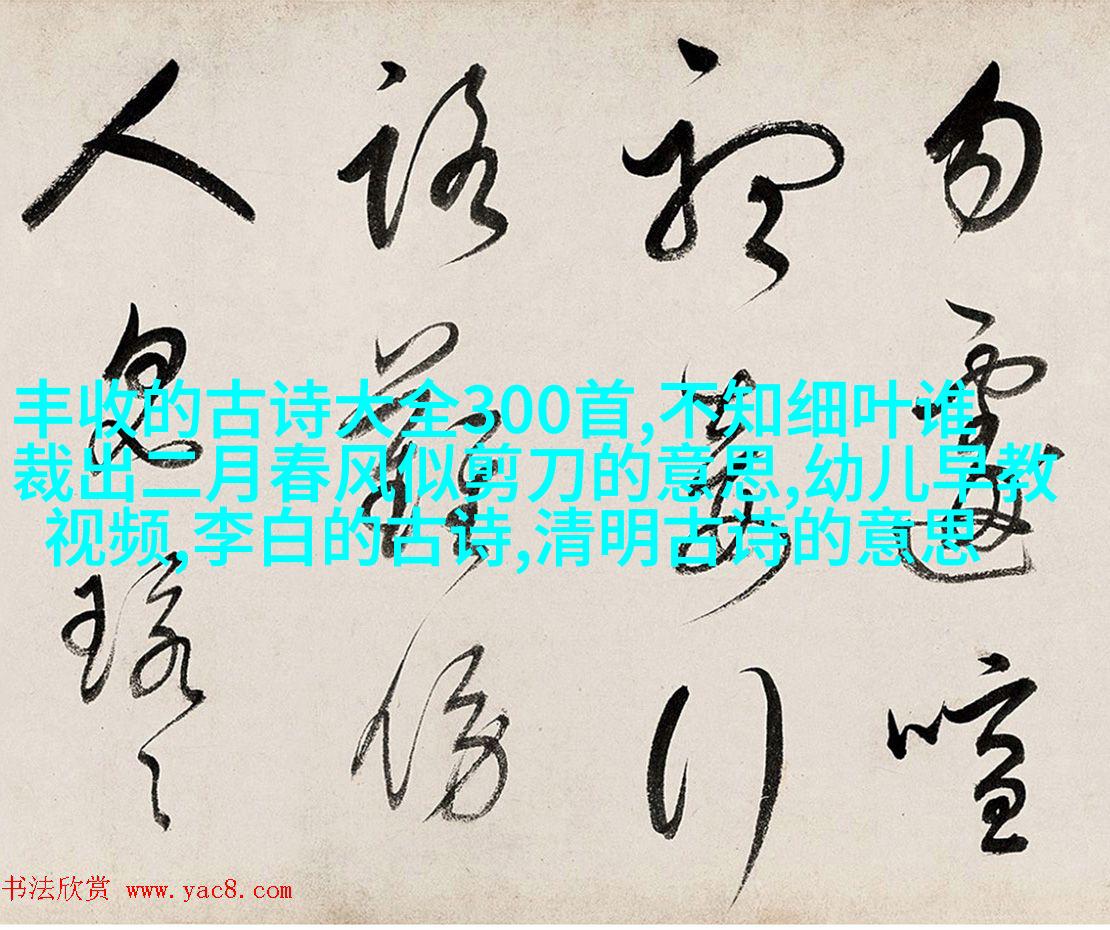 勿遽喧
行
路難傍
人
丰收的古诗大全300首,不知细叶谁
裁出二月春风似剪刀的意思,幼儿早教
视频,李白的古诗,清明古诗的意思
书法欣赏 www.yac8.com